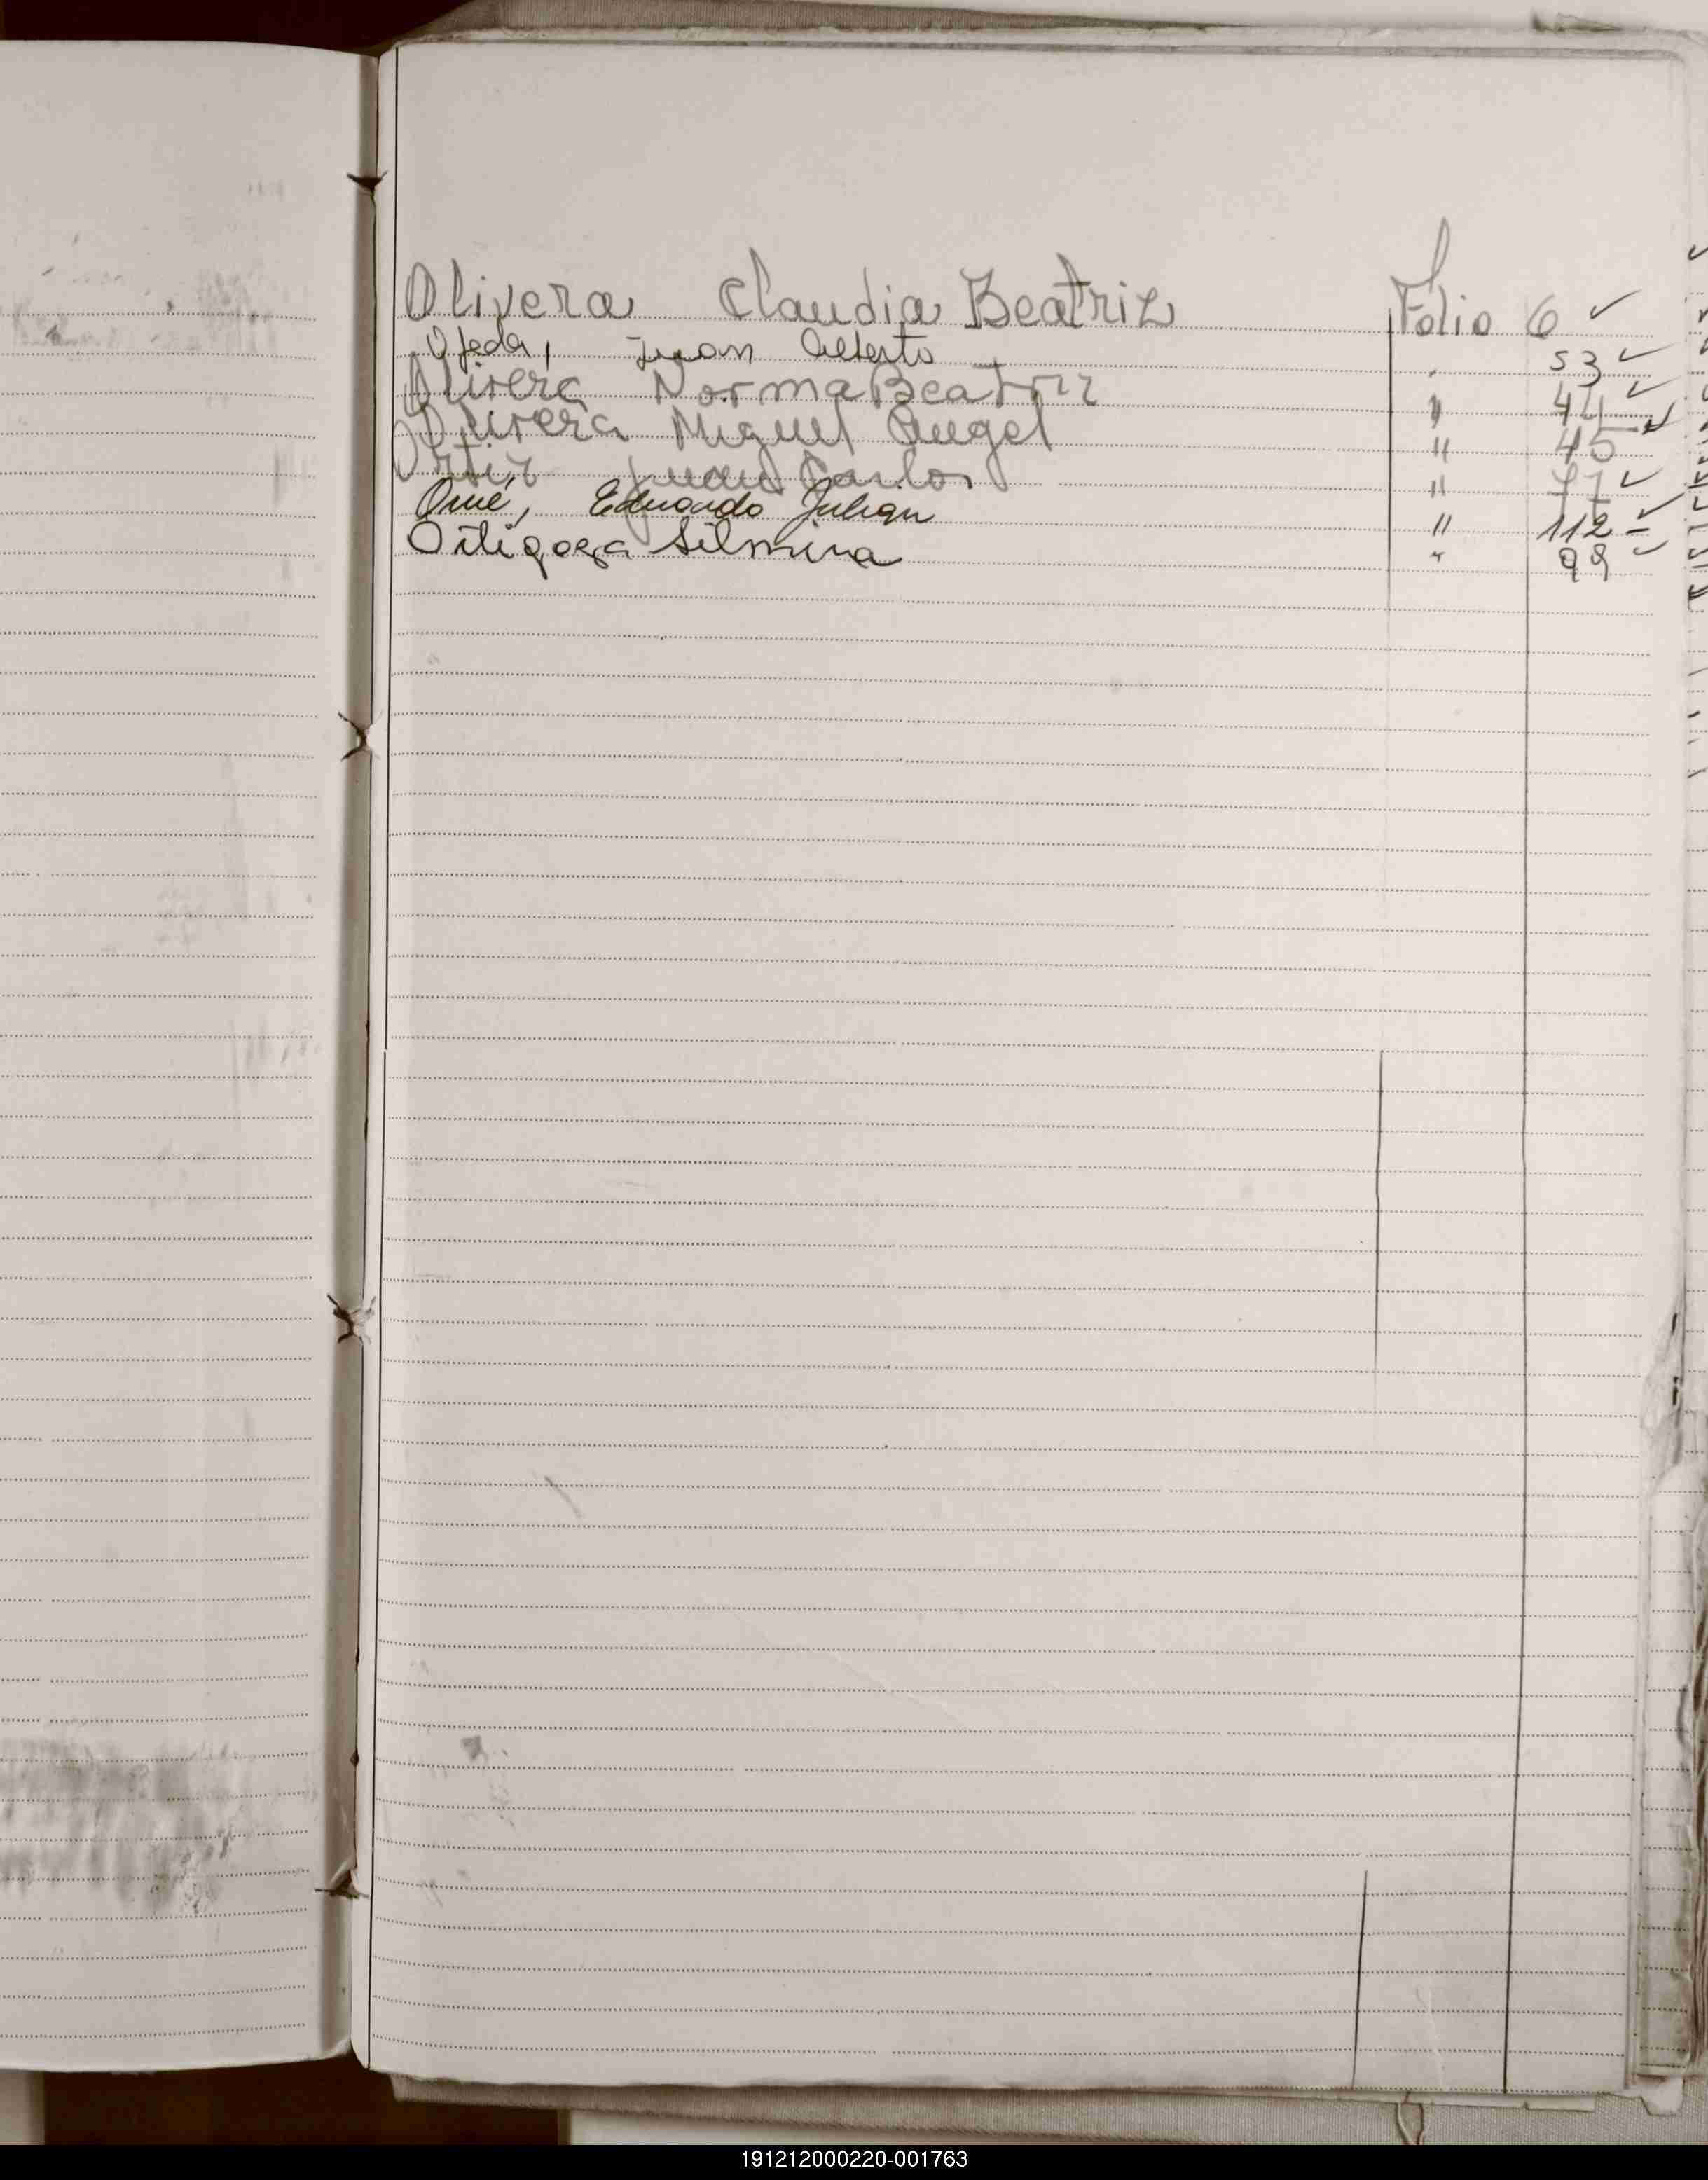 Olivera Claudia Beatriz Folio 6 ✓
Ojeda, Juan Alberto " 53 ✓
Olivera Norma Beatriz " 44 ✓
Olivera Miguel Angel " 45 ✓
Ortiz Juan Carlos " 77 ✓
Omé, Eduardo Julian " 112 ✓
Ortigoza Silmina " 99 ✓
191212000220-001763